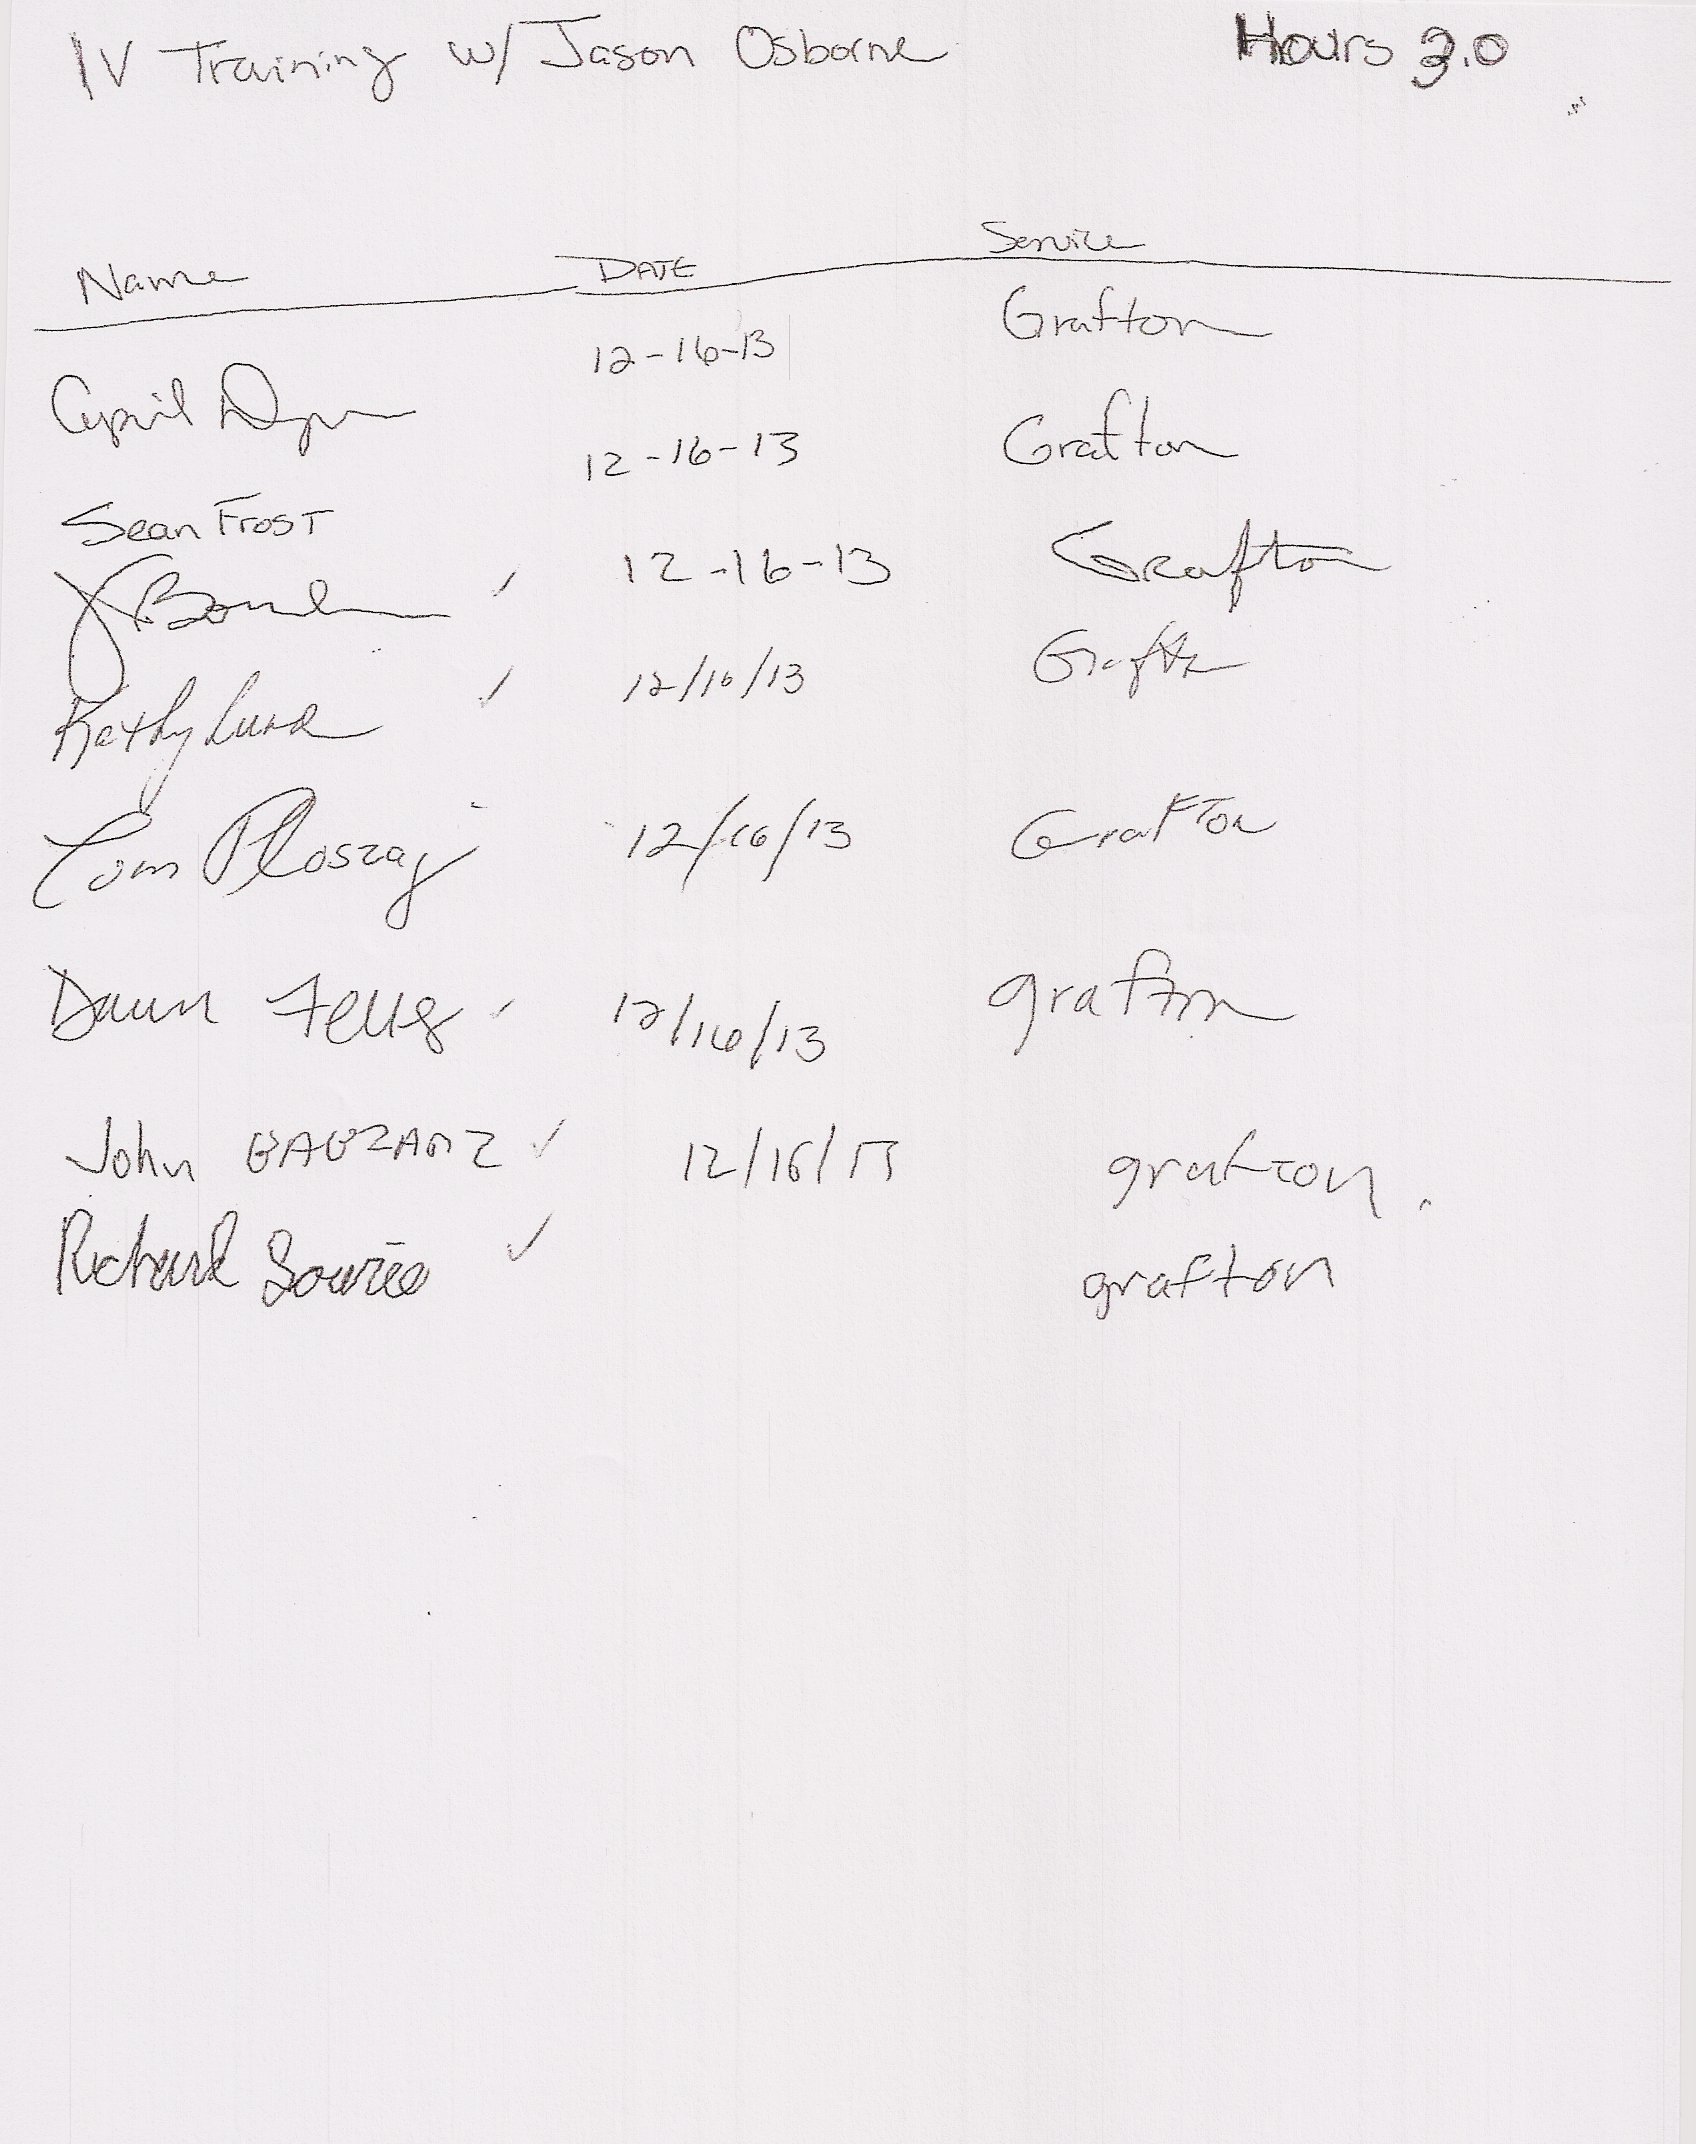 IV Training w/ Jason Osborne Hours 3.0
Name DATE Service
12-16-13 Grafton
Cyril
12-16-13 Grafton
Sean Frost
12-16-13 Grafton
12/16/13 Grafton
Kathy Lund
12/16/13 Grafton
Tom Ploszaj
Dawn 12/16/13 grafton
John 12/16/13 grafton.
Richard grafton